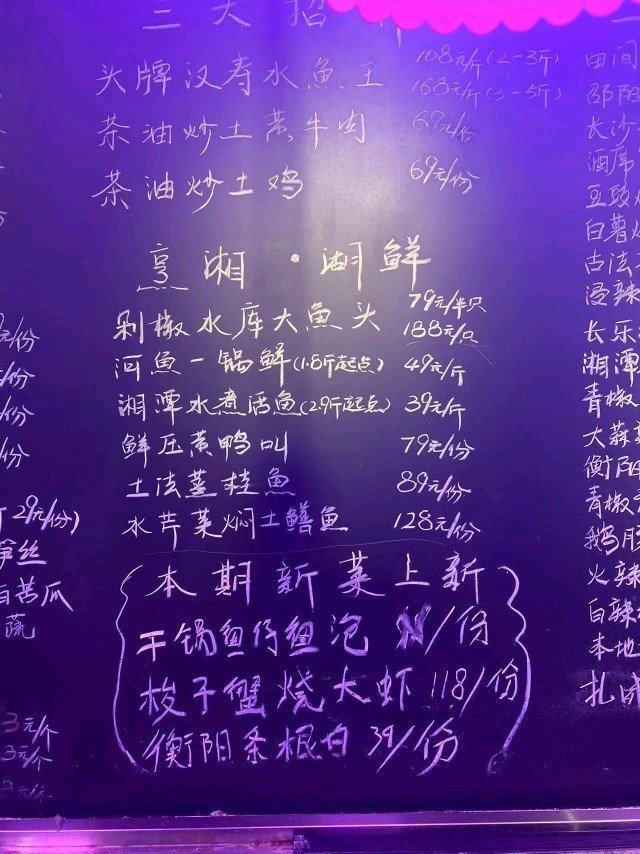 三大招
头牌汉寿水鱼王 108元/斤(2-3斤)
168元/斤(3-5斤)
茶油炒土黄牛肉 69元/份
茶油炒土鸡 69元/份
烹湘·湖鲜
剁椒水库大鱼头 79元/半只
188元/只
河鱼一锅鲜(1.8斤起点) 49元/斤
湘潭水煮活鱼(2.9斤起点) 39元/斤
鲜压黄鸭叫 79元/份
土法蒸桂鱼 89元/份
水芹菜焖土鳝鱼 128元/份
本期新菜上新
干锅鱼仔鱼泡 /份
梭子蟹烧大虾 118/份
衡阳条根白 39/份
元/份
元/份
/份
/份
29元/份)
丝
白苦瓜
蔬
3元/个
3元/个
田间
邵阳
长沙
酒席
豆豉
白薯
古法
浸辣
长乐
湘潭
青椒
大蒜
衡阳
青椒
鹅肠
火辣
白辣
本地
扎